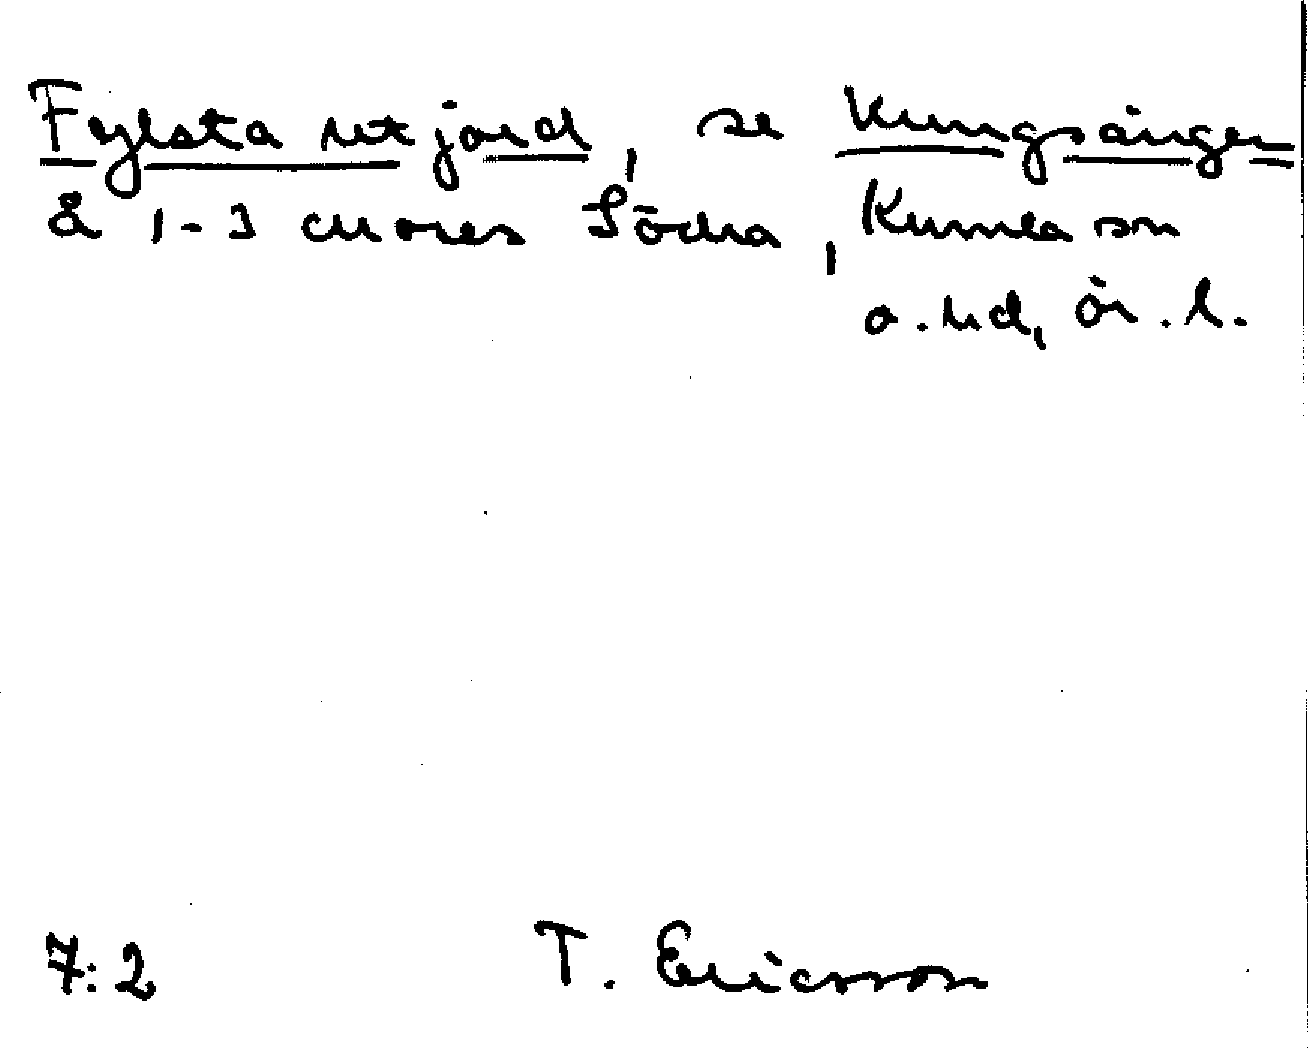 Fylsta utjord, se Kungsängen
å 1-3 chores Södra, Kumla sn
o. hd, ör. l.
7:2 T. Ericsson